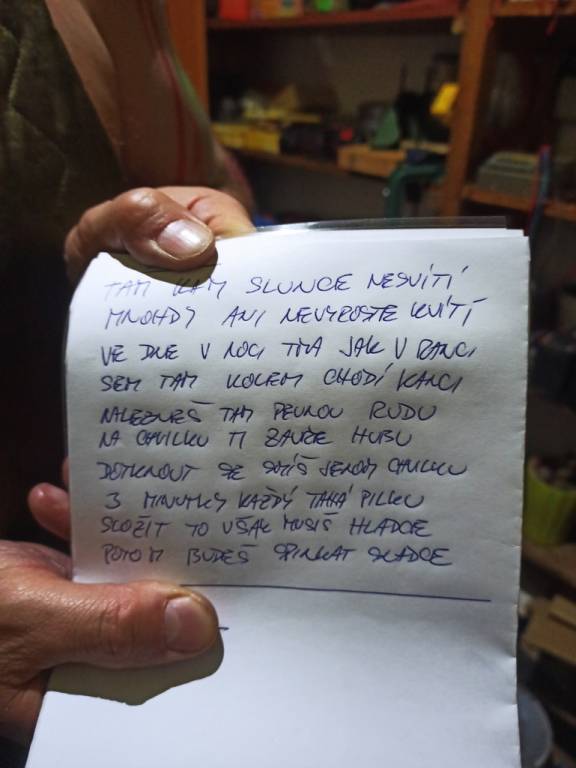 TAM KAM SLUNCE NESVÍTÍ
MNOHDY ANI NEVYROSTE KVÍTÍ
VE DNE V NOCI TMA JAK V RANCI
SEM TAM KOLEM CHODÍ KANCI
NALEZNEŠ TAM PEVNOU RUDU
NA CHVILKU TI ZAVŘE HUBU
DOTKNOUT SE SMÍŠ JENOM CHVILKU
3 MINUTKY KAŽDÝ TAHÁ PILKU
SLOŽIT TO VŠAK MUSÍŠ HLADCE
POTOM BUDEŠ SPINKAT SLADCE